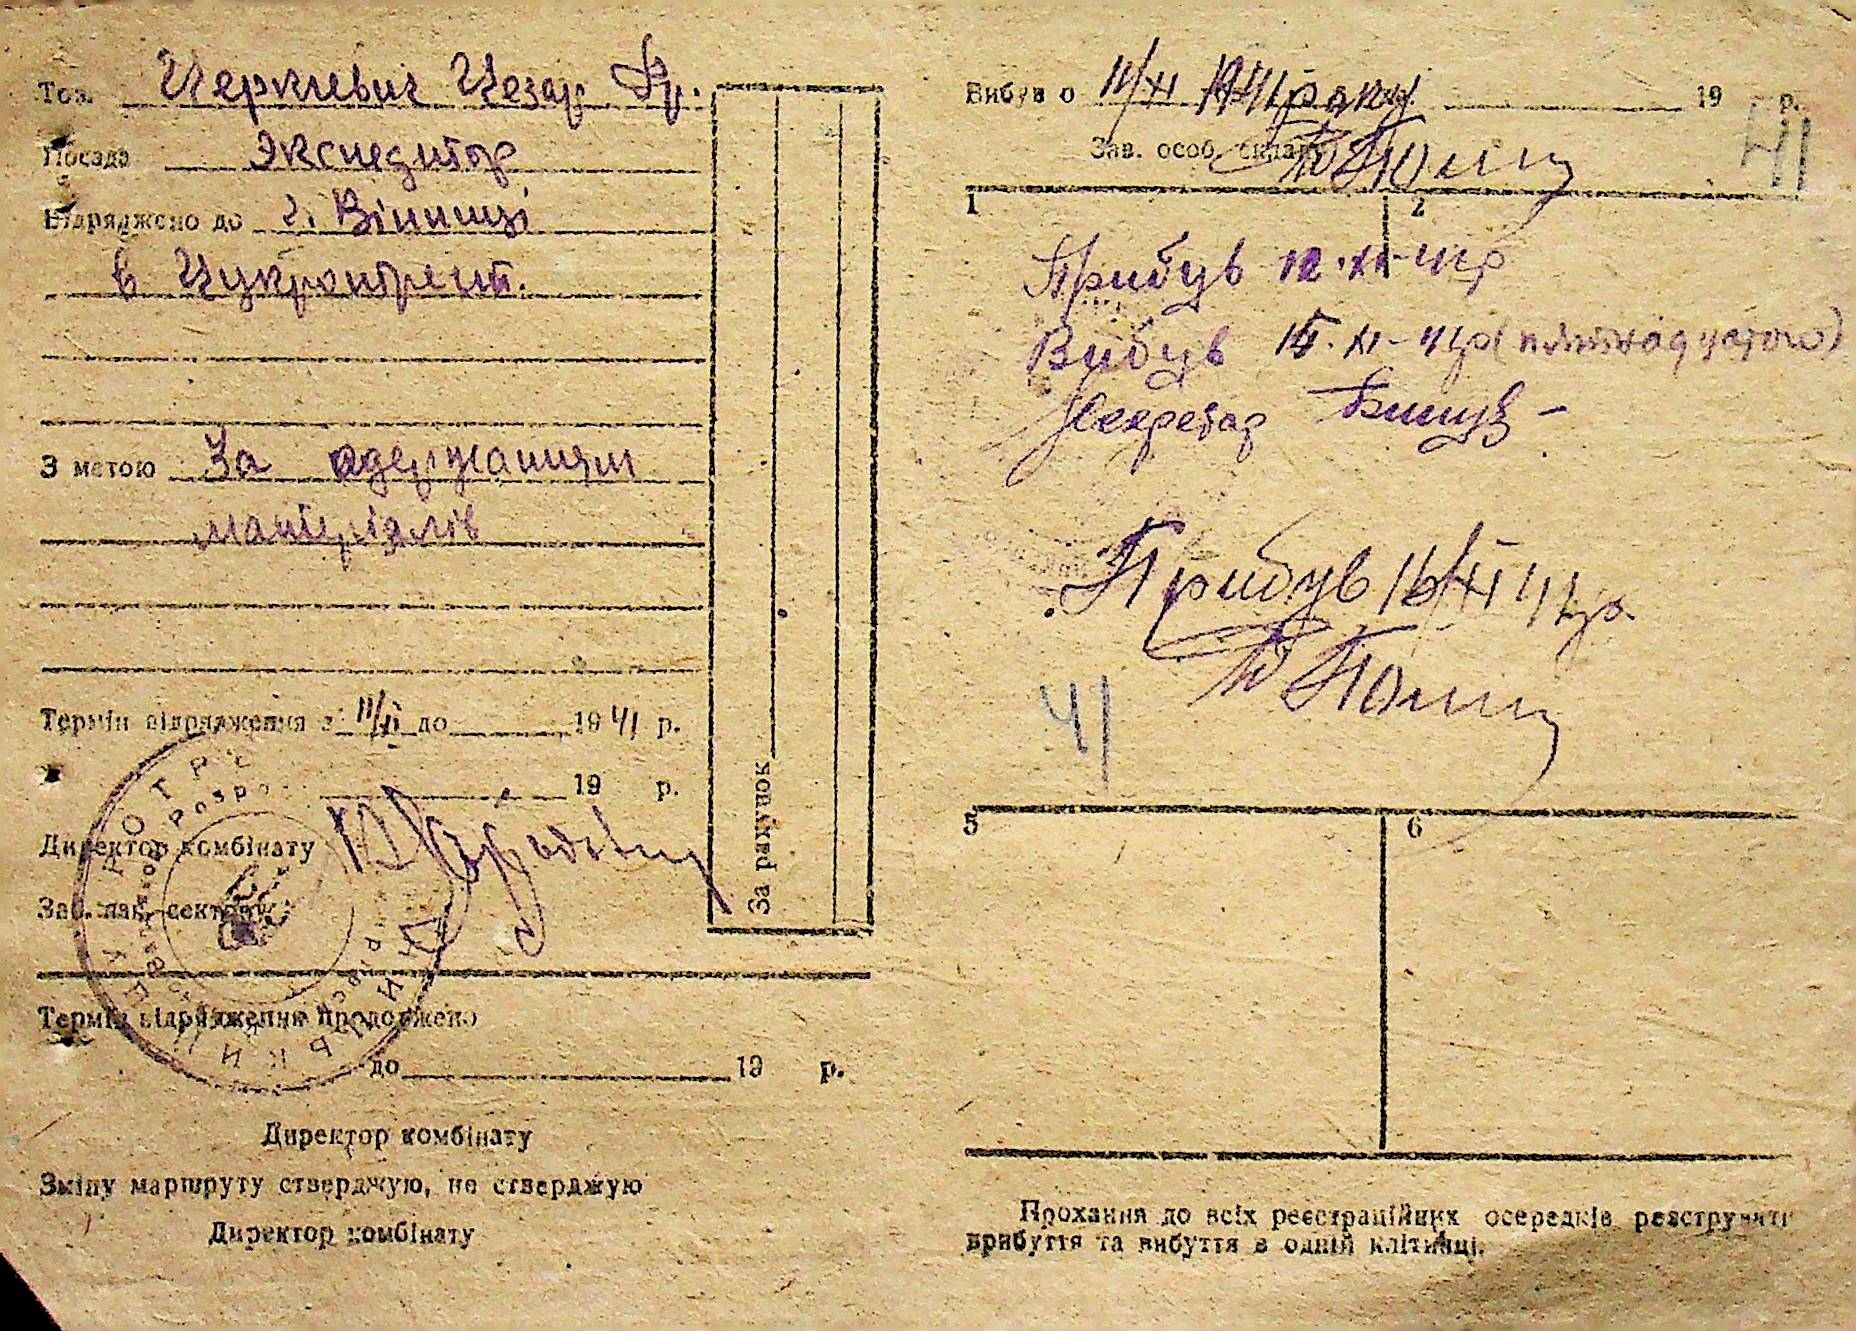 Тов. Черкевич Цезар Фр.
Посада Экспедитор
Відряджено до г. Вінниці
в Цукротрест.
З метою За одержанням
матеріалів
Термін відрядження з 11/XI до 1941 р.
19 р.
Директор комбінату
Зав. сектору
За рахунок
Термін відрядження продовжено
до 19 р.
Директор комбінату
Зміну маршруту стверджую, не стверджую
Директор комбінату
Вибув о 11/XI 1941 року 19 р.
41
Зав. особ. складу
1 2
Прибув 12.XI-41р
Вибув 15.XI-41р (пятнадцятого)
Секретар
Прибув 16/XI 41р.
41
5 6
Прохання до всіх реєстраційних осередків реєструвати
прибуття та вибуття в одній клітинці.